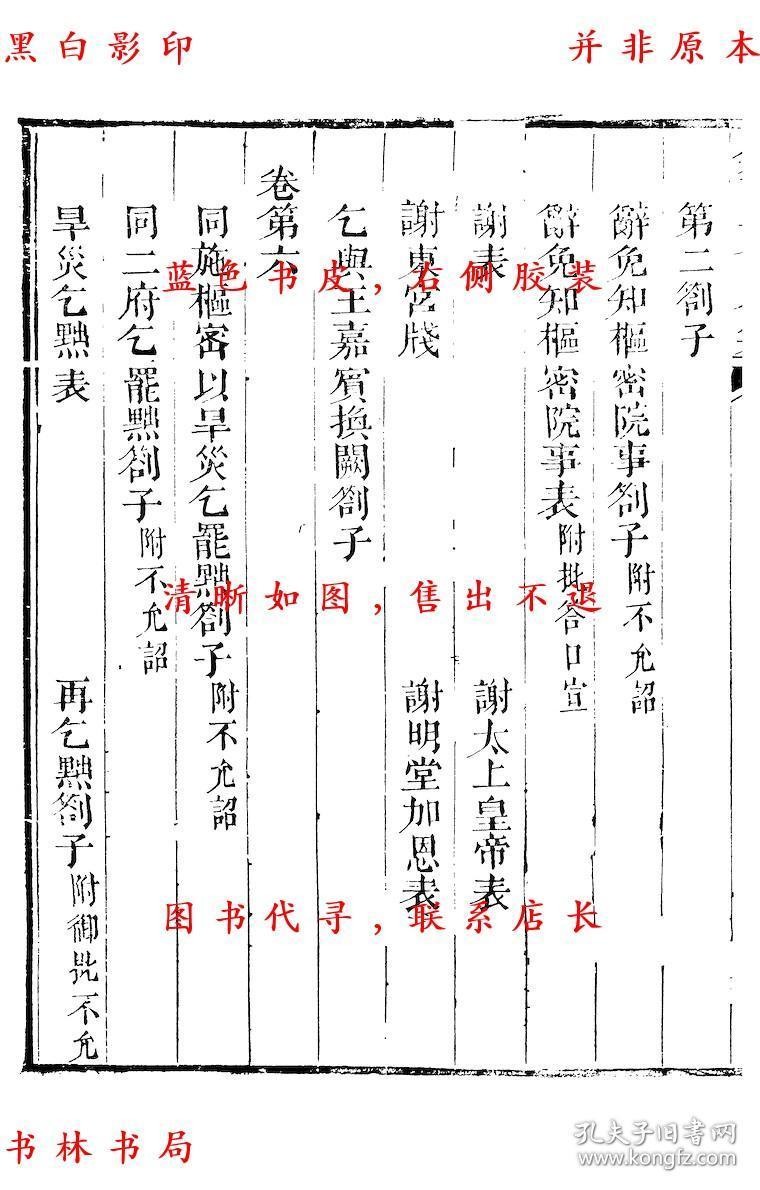 黑白影印
并非原本
第二劄子
辭免知樞密院事劄子附不允詔
辭免知樞密院事表附批答口宣
謝表 謝太上皇帝表
謝東宮牋 謝明堂加恩表
乞與王嘉賓換闕劄子
卷第六
同施樞密以旱災乞罷黜劄子附不允詔
同二府乞罷黜劄子附不允詔
旱災乞黜表 再乞黜劄子附御批不允
蓝色书皮,右侧胶装
清晰如图,售出不退
图书代寻,联系店长
书林书局
孔夫子旧书网
www.kongfz.com